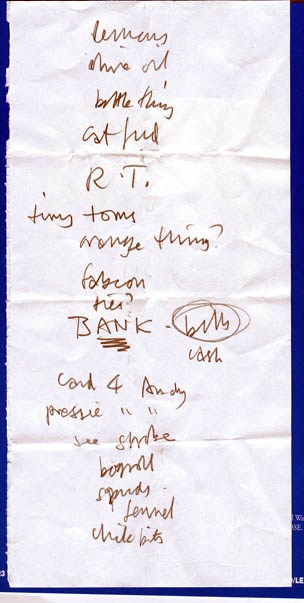 lemons
olive oil
bottle thing
cat food
R.T.
tiny toms
orange thing?
ties?
BANK - bills
cash
card 4 Andy
pressie " "
see stroke
bogroll
squids
fennel